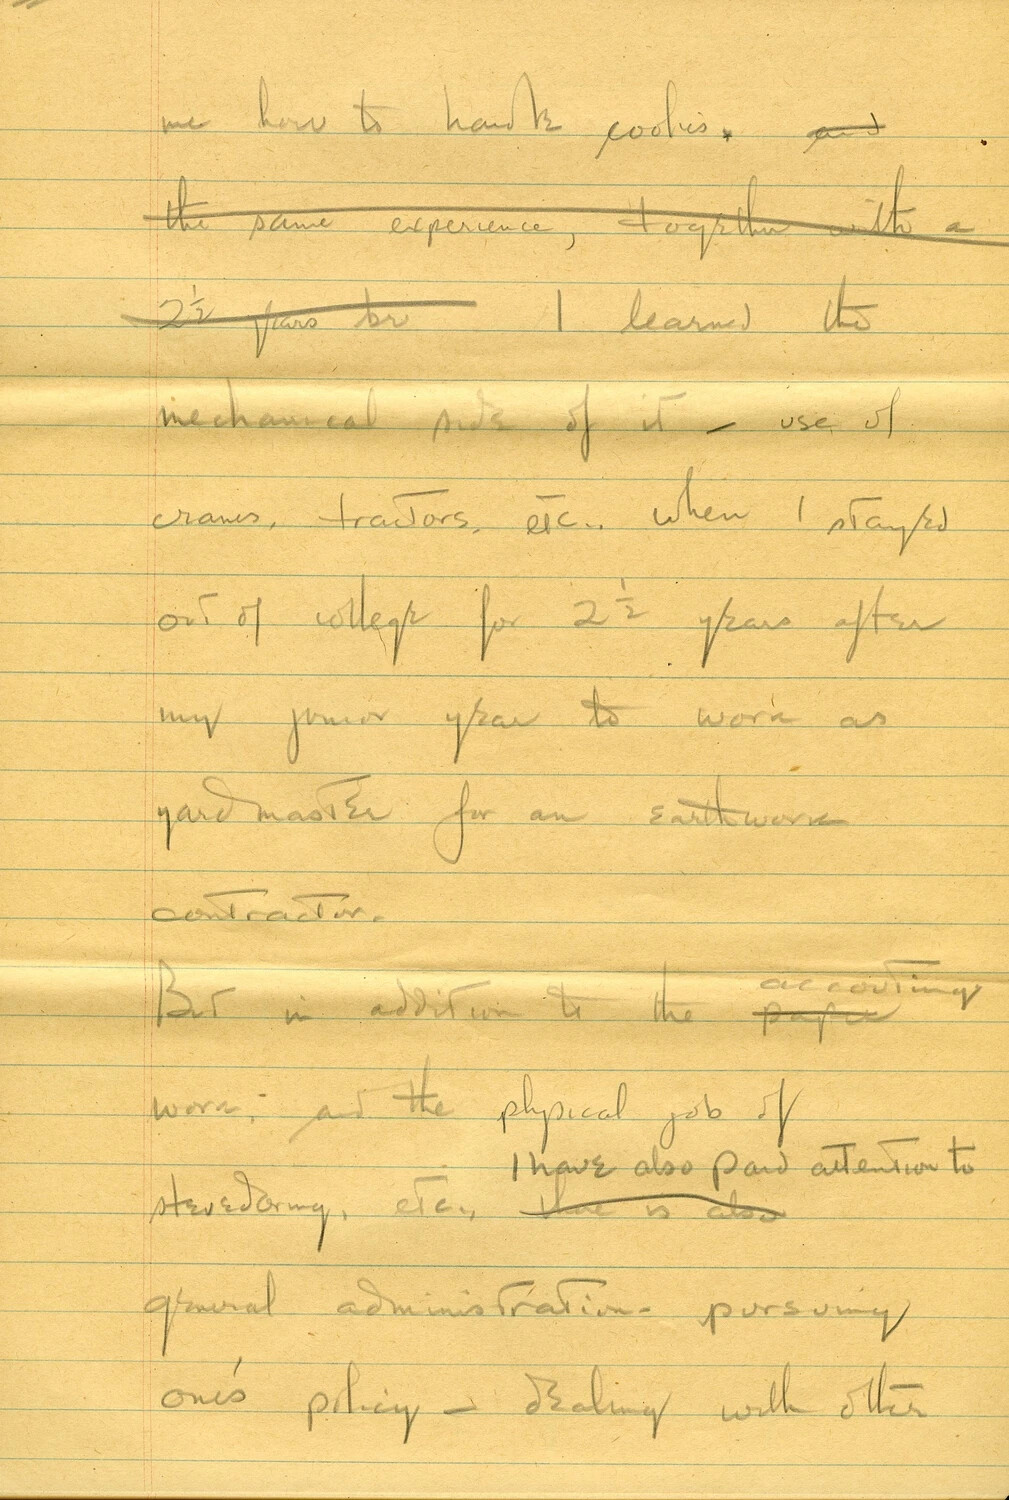 me how to handle coolies. and
the same experience, together with a
2½ years be I learned the
mechanical side of it – use of
cranes, tractors, etc., when I stayed
out of college for 2½ years after
my junior year to work as
yardmaster for an earthwork
contractor.
But in addition to the paper accounting
work, and the physical job of
I have also paid attention to
stevedoring, etc., there is also
general administration – pursuing
one's policy – dealing with other